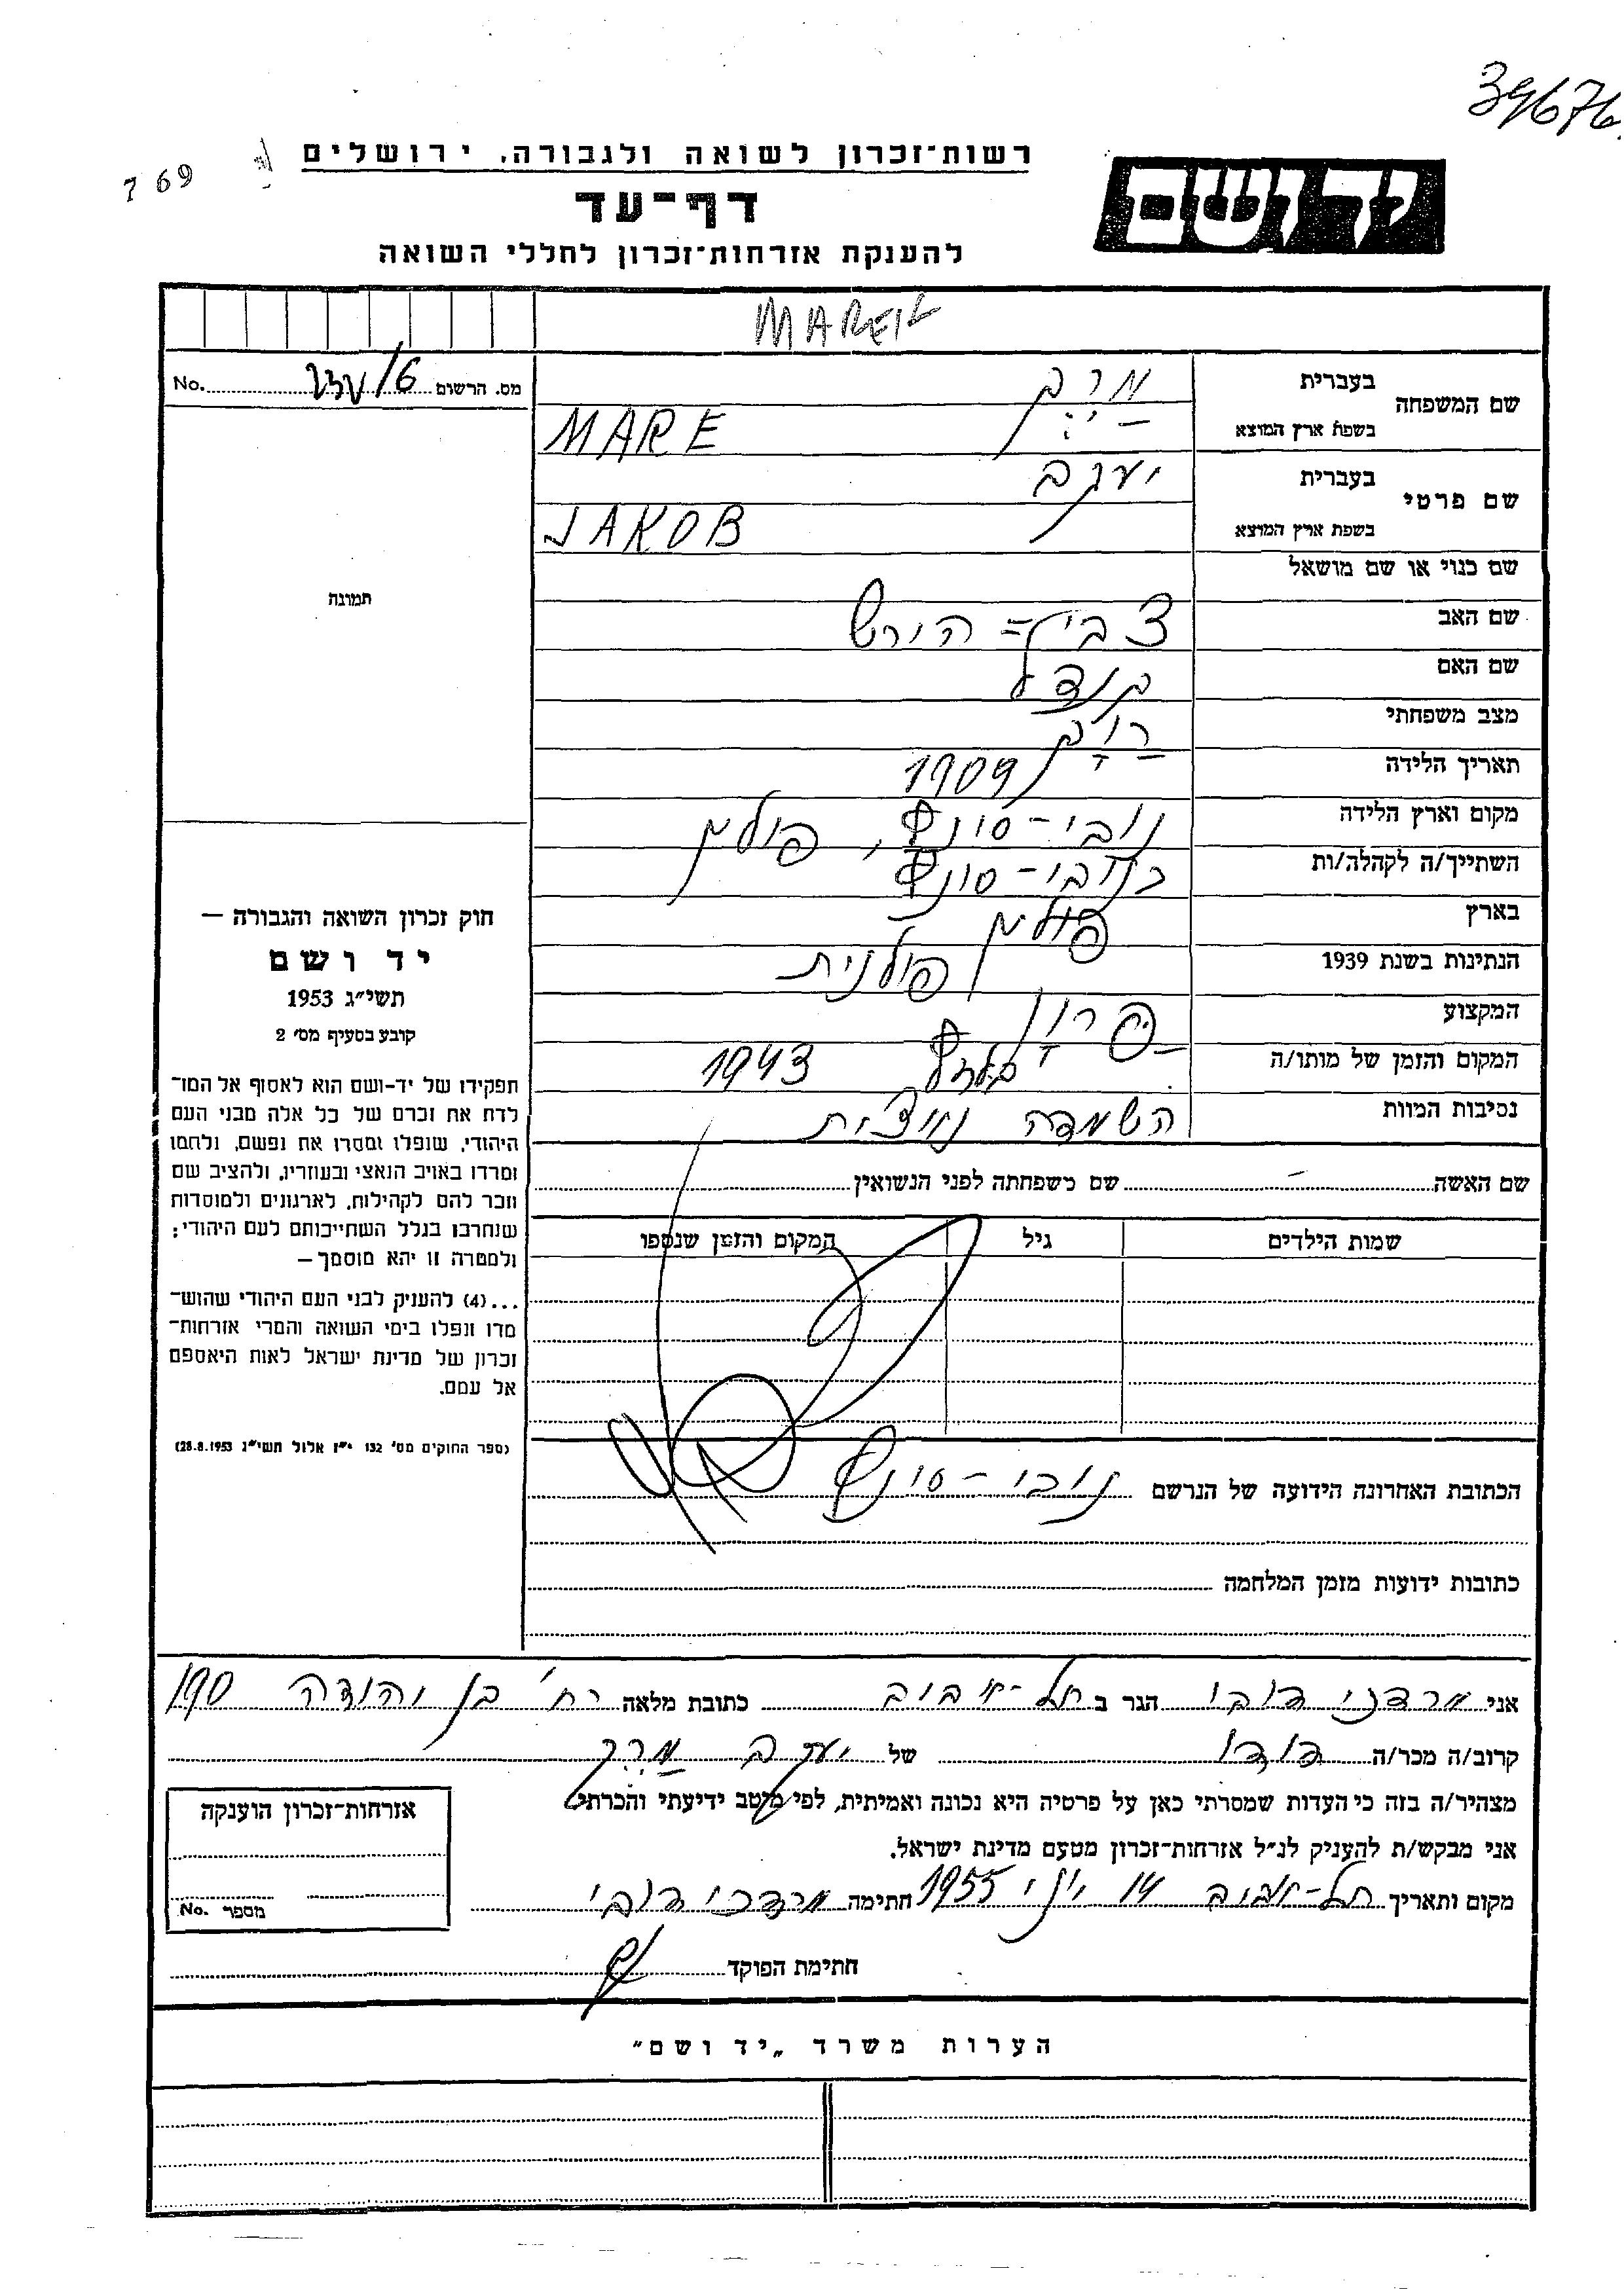 39676
769
רשות־זכרון לשואה ולגבורה, ירושלים
יד ושם
דף־עד
להענקת אזרחות־זכרון לחללי השואה
MAREK
מס. הרשום No.
שם המשפחה בעברית מרק
בשפת ארץ המוצא MARE
שם פרטי בעברית יעקב
בשפת ארץ המוצא JAKOB
תמונה
שם כנוי או שם מושאל
שם האב צבי־הירש
שם האם
מצב משפחתי
תאריך הלידה 1909
מקום וארץ הלידה נובי-סונץ, פולין
השתייך/ה לקהלה/ות נובי-סונץ
בארץ פולין
הנתינות בשנת 1939 פולנית
המקצוע
המקום והזמן של מותו/ה בלזץ 1943
נסיבות המוות השמדה נאצית
שם האשה - שם משפחתה לפני הנשואין
שמות הילדים גיל המקום והזמן שנספו
הכתובת האחרונה הידועה של הנרשם נובי-סונץ
כתובות ידועות מזמן המלחמה
חוק זכרון השואה והגבורה —
יד ושם
תשי״ג 1953
קובע בסעיף מס׳ 2
תפקידו של יד-ושם הוא לאסוף אל המו־
לדת את זכרם של כל אלה מבני העם
היהודי, שנפלו ומסרו את נפשם, נלחמו
ומרדו באויב הנאצי ובעוזריו, ולהציב שם
וזכר להם לקהילות, לארגונים ולמוסדות
שנחרבו בגלל השתייכותם לעם היהודי;
ולמטרה זו יהא מוסמך —
...(4) להעניק לבני העם היהודי שהוש־
מדו ונפלו בימי השואה והמרי אזרחות־
זכרון של מדינת ישראל לאות היאספם
אל עמם.
(ספר החוקים מס׳ 132 י״ז אלול תשי״ג 28.8.1953)
אני מרדכי דובי הגר ב תל-אביב כתובת מלאה רח׳ בן יהודה 190
קרוב/ה מכר/ה דודו של יעקב מרק
מצהיר/ה בזה כי העדות שמסרתי כאן על פרטיה היא נכונה ואמיתית, לפי מיטב ידיעתי והכרתי.
אני מבקש/ת להעניק לנ״ל אזרחות־זכרון מטעם מדינת ישראל.
מקום ותאריך תל-אביב 14 יוני 1955 חתימה מרדכי דובי
אזרחות־זכרון הוענקה
מספר No.
חתימת הפוקד
הערות משרד „יד ושם״